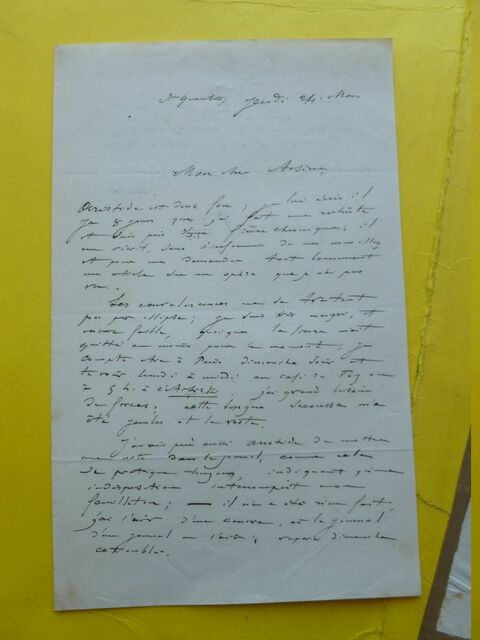 St Quentin, Jeudi 24 Mars
Mon cher Arsène,
Aristide est donc fou ; je lui écris il
y a 8 jours que j'ai fait une rechute
et suis pris d'une fièvre chronique ; il
me récrit, sans s'informer de mes nouvelles
et pour me demander tout bonnement
un article sur un opéra que je n'ai pas
vu.
Les convalescences ne se traitent
pas par ellipse ; je suis très maigri, et
encore faible, quoique la fièvre m'ait
quitté au moins pour le moment ; je
compte être à Paris dimanche soir et
te voir lundi à midi au café de Foy ou
à 5 h. à l'Artiste j'ai grand besoin
de forces ; cette longue secousse m'a
ôté jambes et le reste.
J'avais prié aussi Aristide de mettre
une note dans le journal, comme cela
se pratique toujours, indiquant qu'une
indisposition interrompait mon
feuilleton ; — il n'en a été rien fait,
j'ai l'air d'un, et le journal
d'un journal ; dimanche